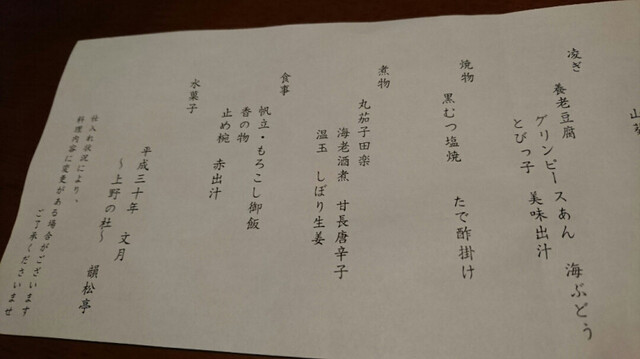 凌ぎ
養老豆腐　海ぶどう
グリンピースあん
とびっ子　美味出汁
焼物
黒むつ塩焼　たで酢掛け
煮物
丸茄子田楽
海老酒煮　甘長唐辛子
温玉　しぼり生姜
食事
帆立・もろこし御飯
香の物
止め椀　赤出汁
水菓子
平成三十年　文月
～上野の杜～　韻松亭
仕入れ状況により、
料理内容に変更がある場合がございます
ご了承くださいませ